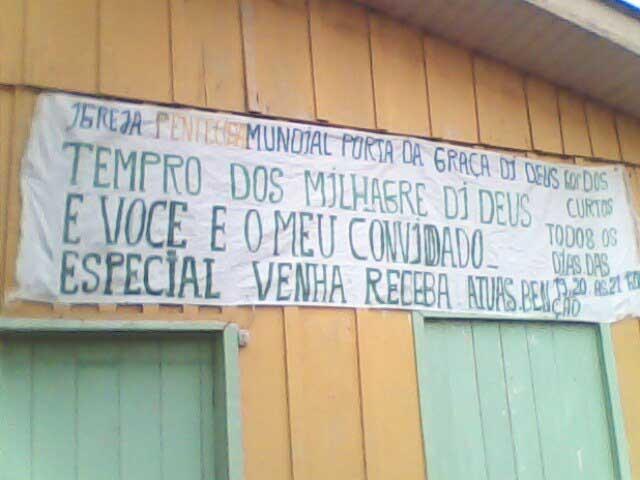 IGREJA PENTECOSTA MUNDIAL PORTA DA GRAÇA DI DEUS
TEMPRO DOS MILHAGRE DI DEUS
E VOCE E O MEU CONVIDADO
ESPECIAL VENHA RECEBA ATUAS.BEN
ÇÃO
DOS
CURTOS
TODOS OS
DIAS.DAS
AS.21